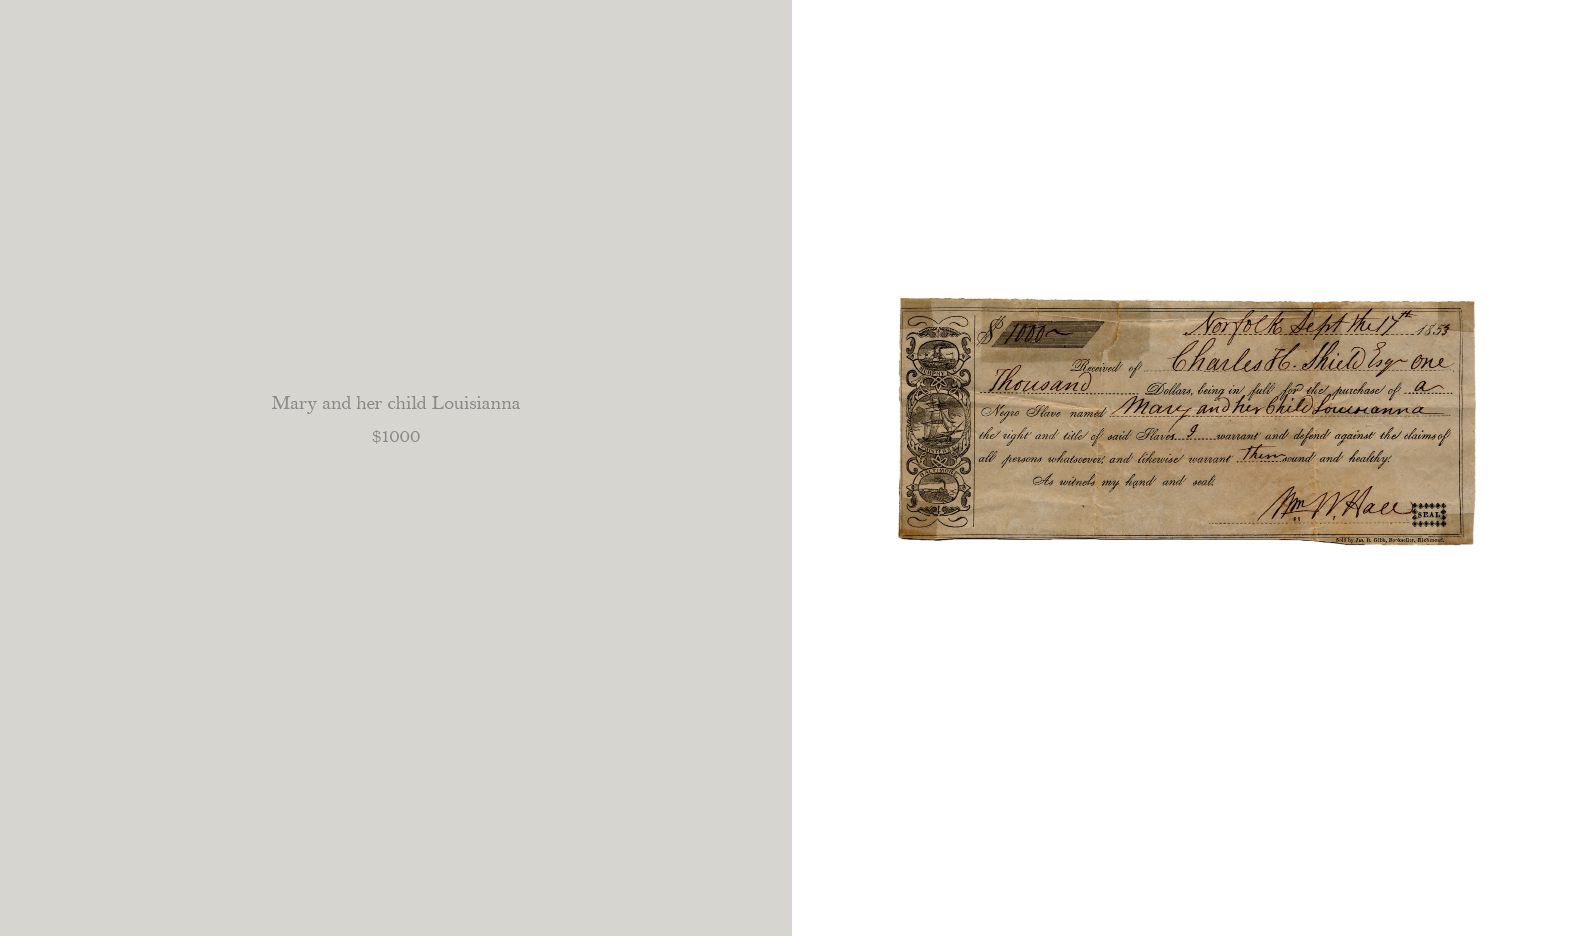 Mary and her child Louisianna
$1000
$ 1000 Norfolk Sept the 17th 1853
Received of Charles H. Shield Esqr one
Thousand Dollars, being in full for the purchase of a
Negro Slave named Mary and her Child Louisianna
the right and title of said Slaves I warrant and defend against the claims of
all persons whatsoever, and likewise warrant them sound and healthy.
As witness my hand and seal.
Wm W. Hall SEAL
Sold by Jas. B. Gibb, Bookseller, Richmond.